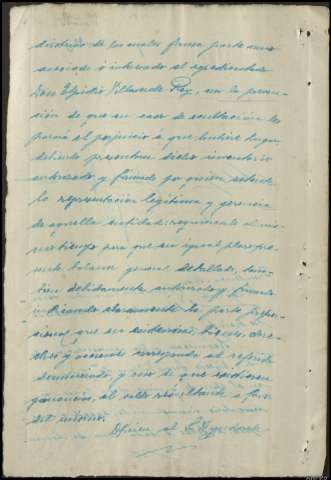 distrito de los cuales forma parte como
asociado o interesado el expedientado
Don Egidio Villaverde Rey, con la preven-
ción de que en caso de ocultación les
parará el perjuicio a que hubiere lugar,
debiendo presentar dicho inventario
autorizado y firmado por quien ostente
la representación legítima y gerencia
de aquella entidad; requiriendo al mis-
mo tiempo para que en igual plazo pre-
sente balance general detallado, tam-
bién debidamente autorizado y firmado
indicando claramente la parte propor-
cional que en existencias, bienes, dere-
chos y acciones corresponda al referido
denunciado, y caso de que existieren
ganancias, el saldo resultante a favor
del mismo.
Ofíciese al